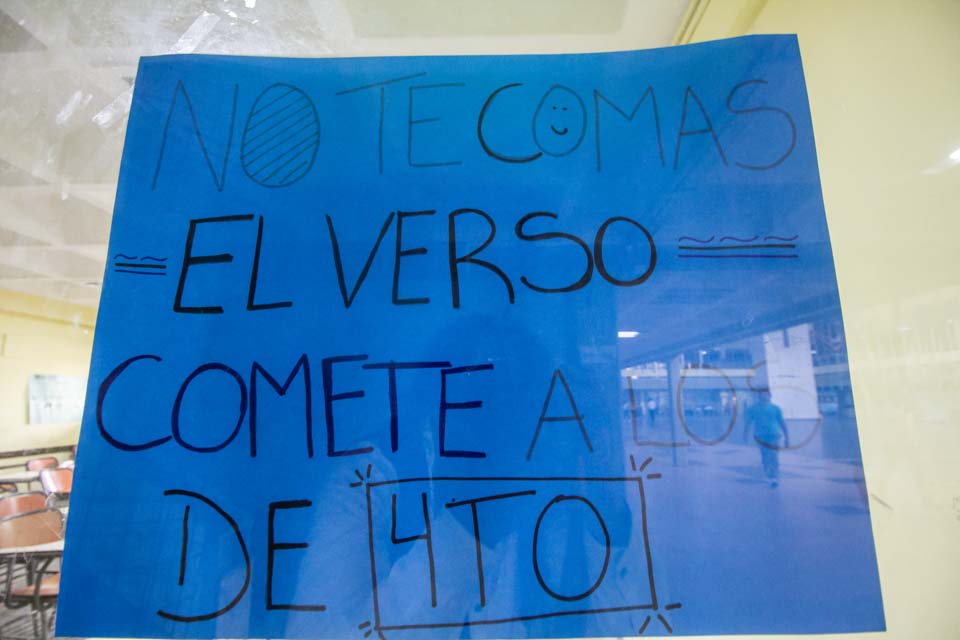 NO TE COMAS
EL VERSO
COMETE A LOS
DE 4TO